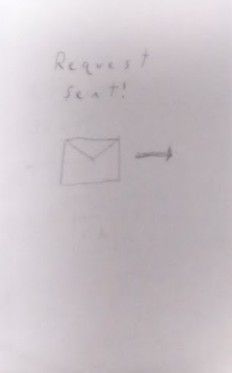 Request
sent!